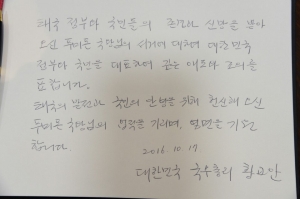 태국 정부와 국민들의 존경과 신망을 받아
오신 푸미폰 국왕님의 서거에 대하여 대한민국
정부와 국민을 대표하여 깊은 애도와 조의를
표합니다.
태국의 발전과 국민의 안녕을 위해 헌신해 오신
푸미폰 국왕님의 업적을 기리며, 명면을 기원
합니다.
2016. 10. 17
대한민국 국무총리 황교안